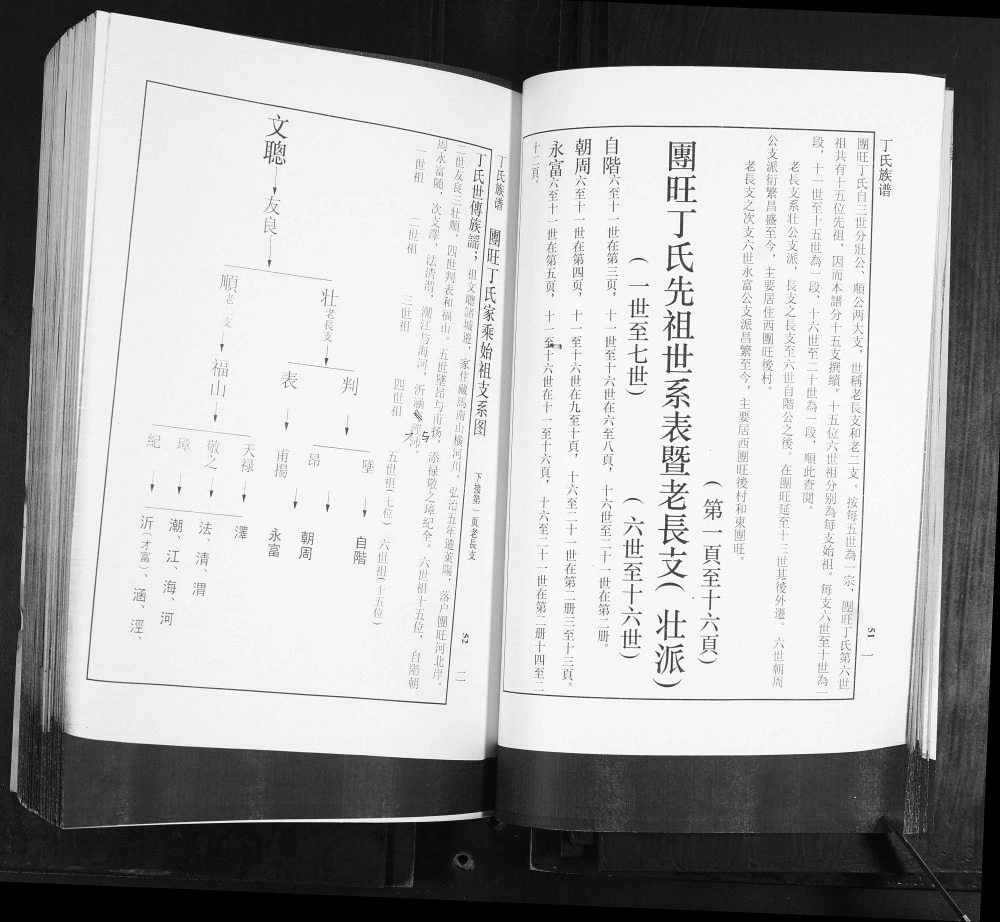 丁氏族谱
51 一
團旺丁氏自三世分壯公、順公两大支，世稱老長支和老二支。按每五世為一宗，團旺丁氏第六世
祖共有十五位先祖，因而本譜分十五支撰續。十五位六世祖分别為每支始祖。每支六世至十世為一
段，十一世至十五世為一段，十六世至二十世為一段，順此查閲。
老長支系壮公支派，長支之長支至六世自階公之後。在團旺延至十三世其後外遷。六世朝周
公支派衍繁昌盛至今，主要居住西團旺後村。
老長支之次支六世永富公支派昌繁至今，主要居西團旺後村和東團旺。
（第一頁至十六頁）
團旺丁氏先祖世系表暨老長支（壮派）
（一世至七世）
（六世至十六世）
自階六至十一世在第三页，十一世至十六世在六至八頁，十六世至二十一世在第二册。
朝周六至十一世在第四页，十一至十六世在九至十頁，十六至二十一世在第二册三至十三頁。
永富六至十一世在第五页，十一至十六世在十一至十六頁，十六至二十一世在第二册十四至二
十二頁。
丁氏族谱
團旺丁氏家乘始祖支系图
下接第一页老長支
52 二
丁氏世傳族謡；祖文聰諸城遷，家住藏馬南山橫河川。弘治五年遷萊陽，落户團旺河北岸。
二世友良三壮順，四世判表和福山。五世墜昂与甫揚，添禄敬之璋紀全。六世祖十五位，自階朝
周永富随，次支澤、法清渭，潮江与海河，沂涵
一世祖
二世祖
三世祖
四世祖
五世祖（七位）
六世祖（十五位）
文聰
友良
壮老長支
順老二支
判
表
福山
墜
昂
甫揚
天禄
敬之
璋
紀
自階
朝周
永富
澤
法、清、渭
潮、江、海、河
沂（才富）、涵、淫、